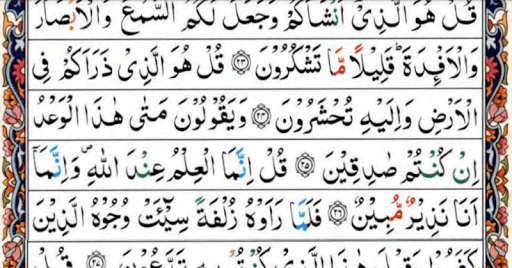 قُلْ هُوَ الَّذِىْٓ اَنْشَاَكُمْ وَجَعَلَ لَكُمُ السَّمْعَ وَالْاَبْصَارَ
وَالْاَفْـِٕدَةَ ؕ قَلِيْلًا مَّا تَشْكُرُوْنَ ﴿۲۳﴾ قُلْ هُوَ الَّذِىْ ذَرَاَكُمْ فِى
الْاَرْضِ وَاِلَيْهِ تُحْشَرُوْنَ ﴿۲۴﴾ وَيَقُوْلُوْنَ مَتٰى هٰذَا الْوَعْدُ
اِنْ كُنْتُمْ صٰدِقِيْنَ ﴿۲۵﴾ قُلْ اِنَّمَا الْعِلْمُ عِنْدَ اللّٰهِ ۪ وَاِنَّمَاۤ
اَنَا نَذِيْرٌ مُّبِيْنٌ ﴿۲۶﴾ فَلَمَّا رَاَوْهُ زُلْفَةً سِيْٓـَٔتْ وُجُوْهُ الَّذِيْنَ
كَفَرُوْا وَقِيْلَ هٰذَا الَّذِىْ كُنْتُمْ بِهٖ تَدَّعُوْنَ ﴿۲۷﴾ قُلْ